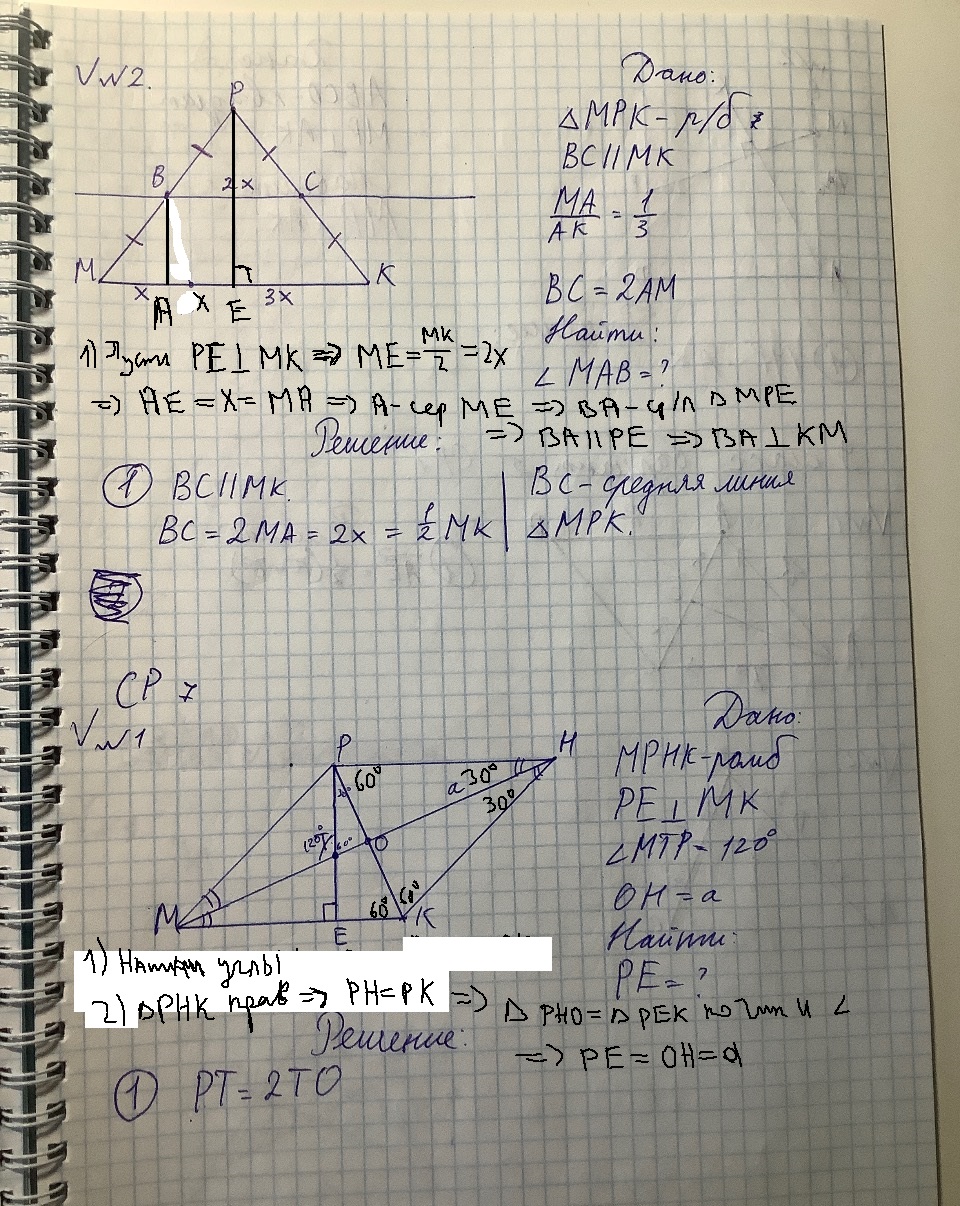 V№2.
P
B
2x
C
M
K
x
A
x
E
3x
Дано:
△MPK - р/б
BC || MK
MA/AK = 1/3
BC = 2AM
Найти:
∠ MAB = ?
1) Пусть PE ⊥ MK => ME = MK/2 = 2x
=> AE = x = MA => A - сер ME => BA - ср/л △ MPE
=> BA || PE => BA ⊥ KM
Решение:
① BC || MK.
BC = 2MA = 2x = 1/2 MK
BC - средняя линия
△MPK.
СР 7
V№1
P
H
60°
30°
a 30°
30°
120°
T
60°
O
60°
60°
M
E
K
Дано:
MPHK - ромб
PE ⊥ MK
∠MTP = 120°
OH = a
Найти:
PE = ?
1) Напишем углы
2) △PHK прав => PH = PK =>
△ PHO = △ PEK по гип и ∠
=> PE = OH = a
Решение:
① PT = 2TO